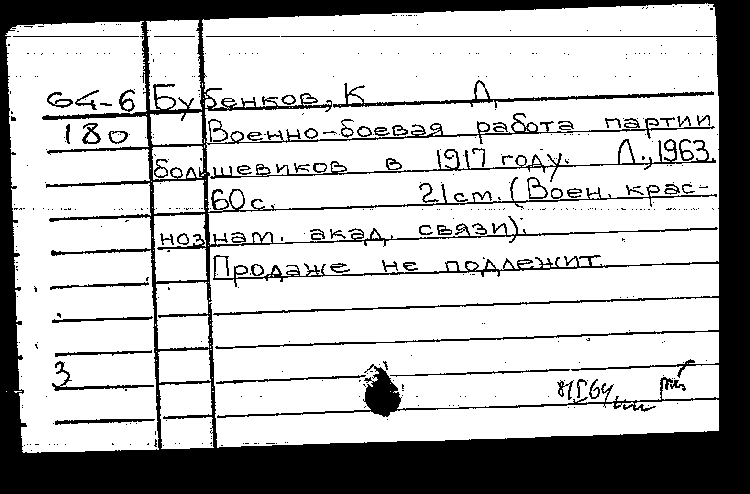 64-6 Бубенков, К Д.
180 Военно-боевая работа партии
большевиков в 1917 году. Л., 1963.
60с. 21см. (Воен. крас-
нознам. акад. связи).
Продаже не подлежит
3